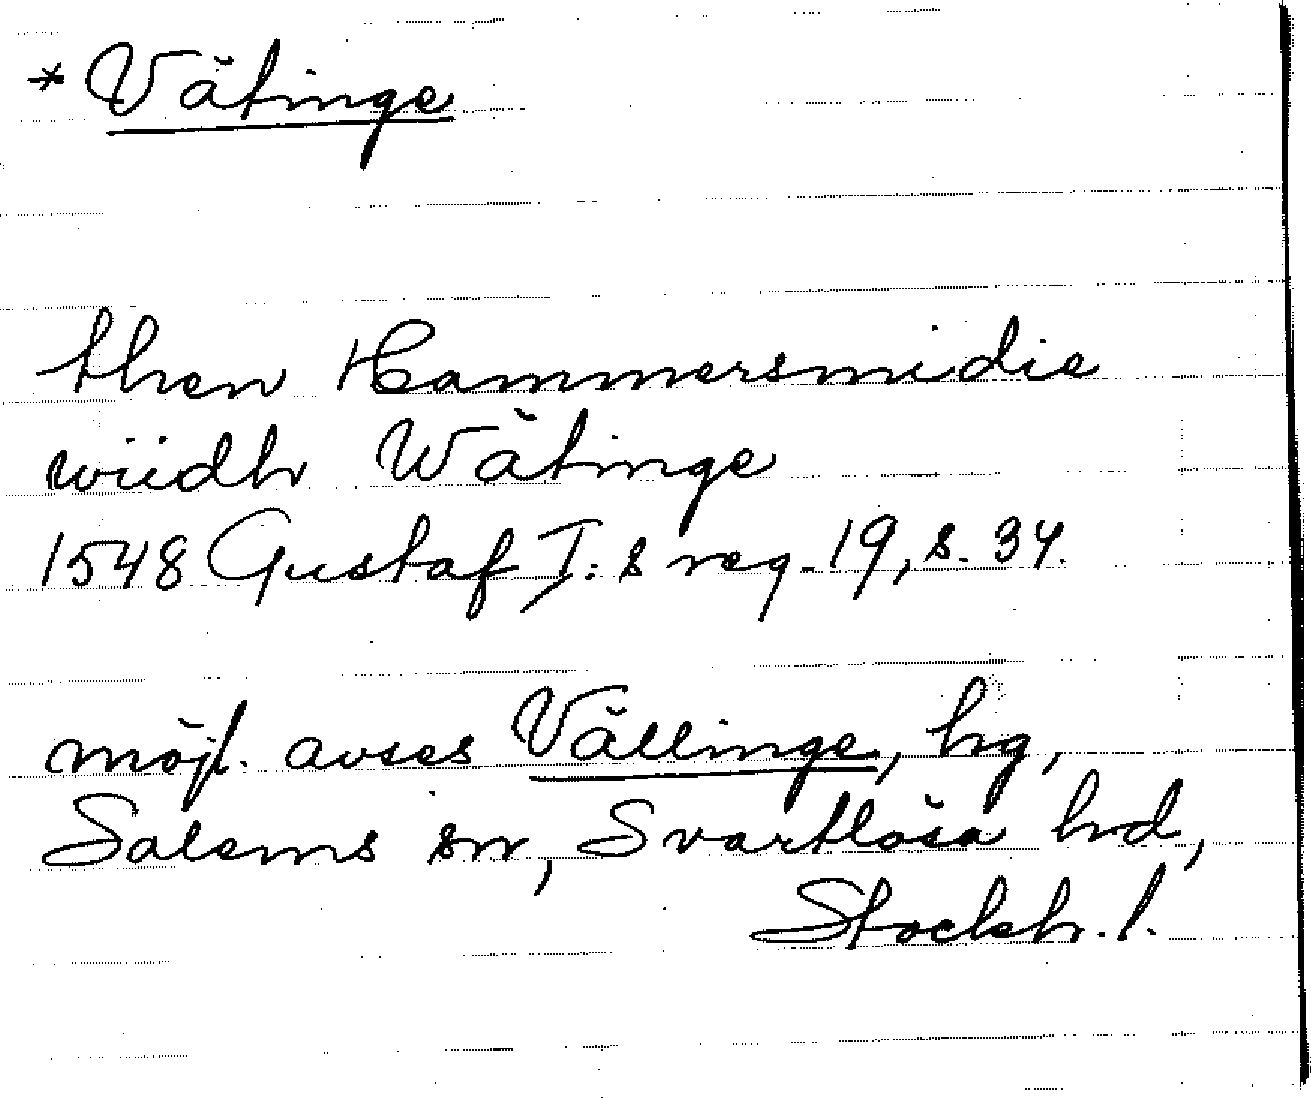 * Vätinge
then Hammersmidie
wiidh Wätinge
1548 Gustaf I:s reg. 19, s. 34.
möjl. avses Vällinge, hg,
Salems sn, Svartlösa hd,
Stockh. l.